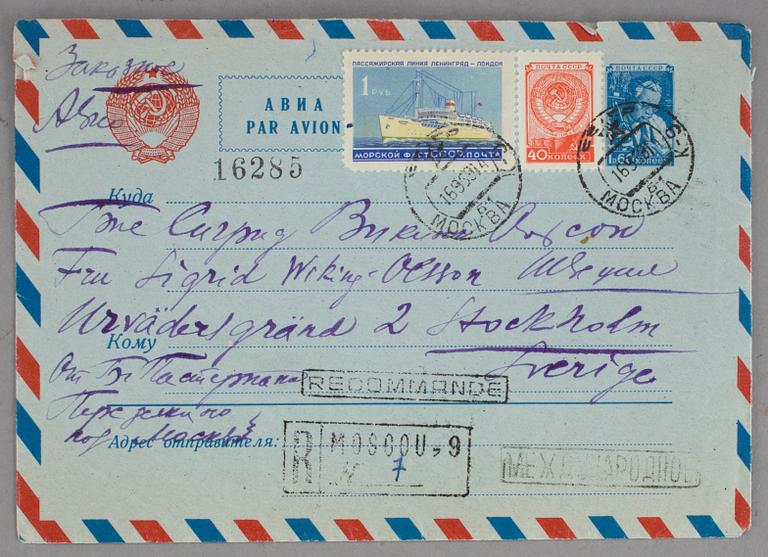 Заказное
Авиа
АВИА
PAR AVION
16285
ПАССАЖИРСКАЯ ЛИНИЯ ЛЕНИНГРАД — ЛОНДОН
1 РУБ.
МОРСКОЙ ФЛОТ СССР. ПОЧТА
ПОЧТА СССР
40 КОПЕЕК
ПОЧТА СССР
КОПЕЕК
МОСКВА
МОСКВА
Куда
Г-же Сигрид Викинг Олссон
Fru Sigrid Wiking-Olsson Швеция
Urvädersgränd 2 Stockholm
Кому
Sverige
От Б. Пастернака
RECOMMANDE
Переделкино
под Москвой
Адрес отправителя:
R MOSCOU-9
№ 7
МЕЖДУНАРОДНОЕ